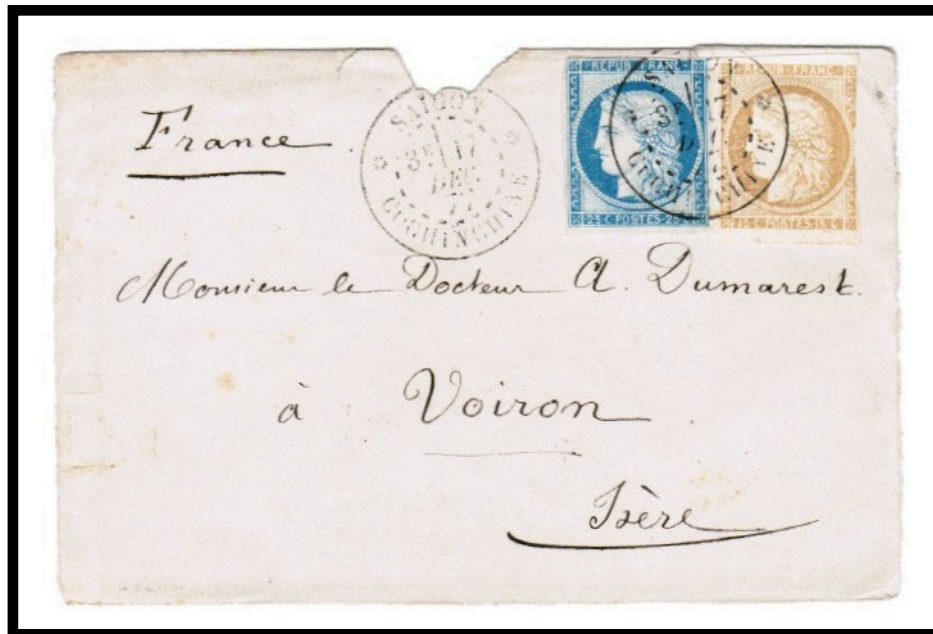 France
SAIGON
3E 17
DEC
77
COCHINCHINE
REPUB. FRANC.
25 C. POSTES 25 C.
REPUB. FRANC.
15 C. POSTES 15 C.
Monsieur le Docteur A. Dumarest.
à Voiron
Isère